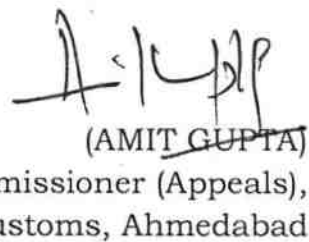 (AMIT GUPTA)
missioner (Appeals),
ustoms, Ahmedabad